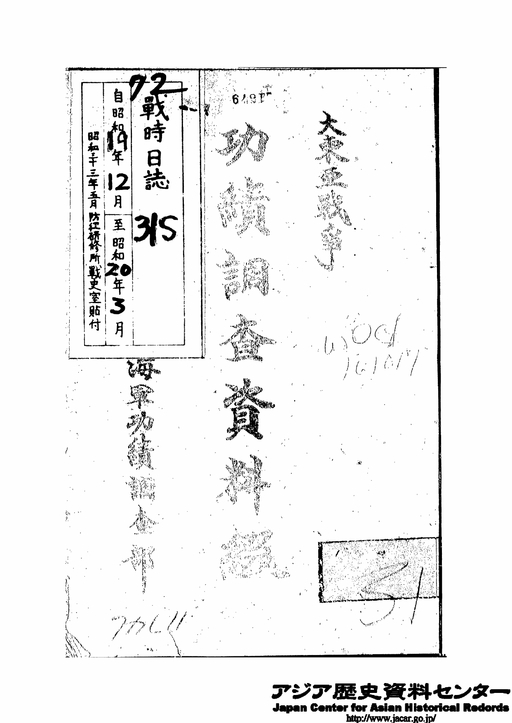 大東亜戦争
功績調査資料
海軍功績調査部
72
戰時日誌
315
自昭和19年12月
至昭和20年3月
昭和三十三年五月防衛研修所戰史室貼付
51
アジア歴史資料センター
Japan Center for Asian Historical Records
http://www.jacar.go.jp/